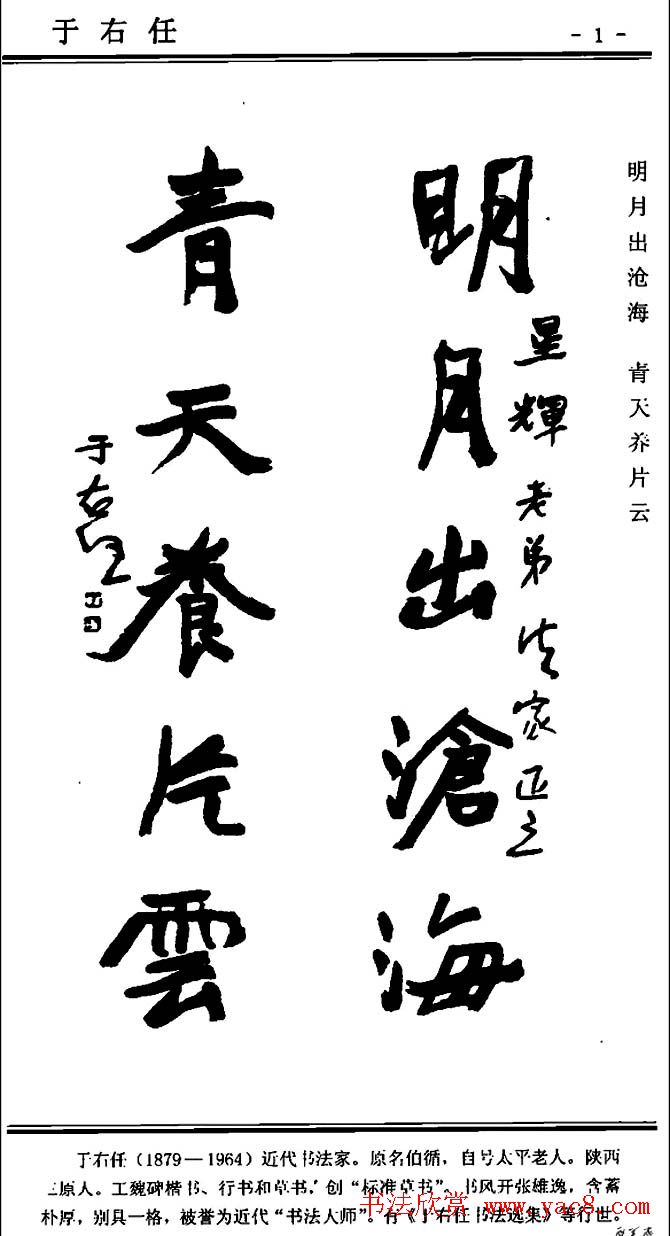 于右任
- 1 -
明月出沧海 青天养片云
明月出滄海
星輝老弟法家正之
青天養片雲
于右任
于右任(1879—1964)近代书法家。原名伯循,自号太平老人。陕西
三原人。工魏碑楷书、行书和草书,创“标准草书”,书风开张雄逸,含蓄
朴厚,别具一格,被誉为近代“书法大师”。有《于右任书法选集》等行世。
书法欣赏
www.yac8.com